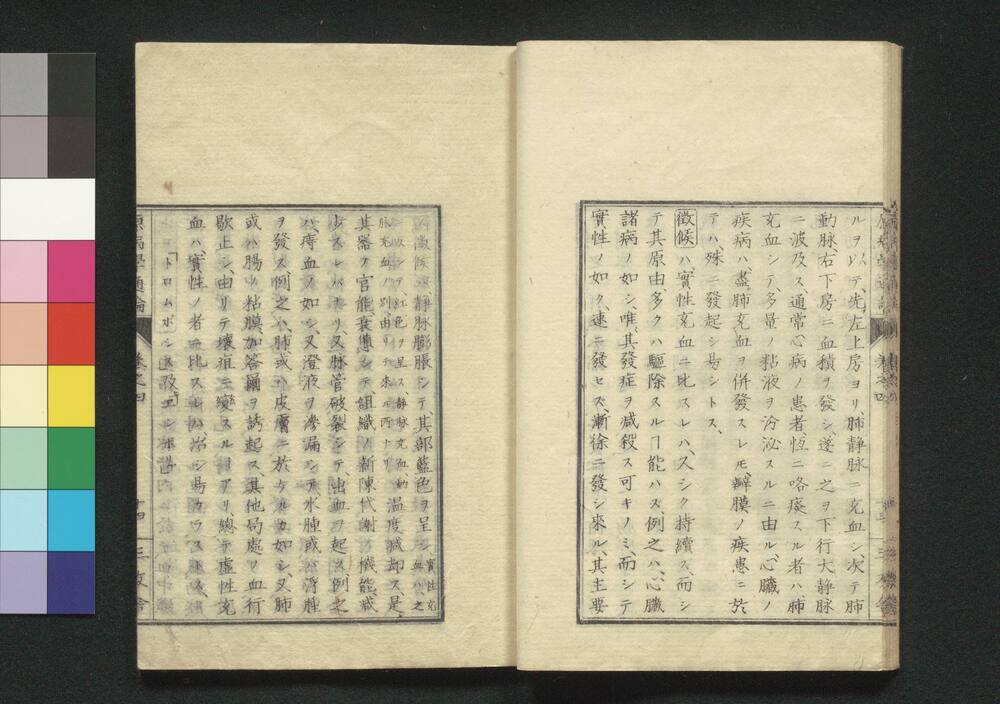 ルヲ以テ、先左上房ヨリ、肺静脉ニ充血シ、次テ肺
動脉、右下房ニ血積ヲ發シ、遂ニ之ヲ下行大静脉
ニ波及ス、通常心病ノ患者恆ニ咯痰スル者ハ、肺
充血シテ、多量ノ粘液ヲ分泌スルニ由ル、心臓ノ
疾病ハ、盡肺充血ヲ併發スレ𪜈、瓣膜ノ疾患ニ於
テハ、殊ニ發起シ易シトス、
徴候ハ、實性充血ニ比スレハ、久シク持續ス、而シ
テ其原由、多クハ驅除スルヿ能ハス、例之ハ、心臓
諸病ノ如シ、唯其發症ヲ減殺ス可キノミ、而シテ
實性ノ如ク、速ニ發セス、漸徐ニ發シ來ル、其主要
静脉膨脹シテ、其部藍色ヲ呈シ、
實性充血ハ之
紅色ヲ呈ス、静脉充血動
脉充血ノ別、由リテ來ル所ナリ
温度減却ス、是
其器ノ官能衰憊シテ、組織ノ新陳代謝ノ機能減
少スレハナリ、又脉管破裂シテ、出血ヲ起ス、例之
ハ、痔血ノ如シ、又澄液ヲ滲漏シテ、水腫或ハ浮腫
ヲ發ス、例之ハ、肺或ハ皮膚ニ於ケルカ如シ、又肺
或ハ腸ノ粘膜、加答爾ヲ誘起ス、其他局處ノ血行
歇止シ、由リテ壞疽ニ變スルヿアリ、總テ虚性充
血ハ、實性ノ者ニ比スレハ、治シ易カラストス、
「トロムボシス」
原病學通論
卷之四
十四
三友舎